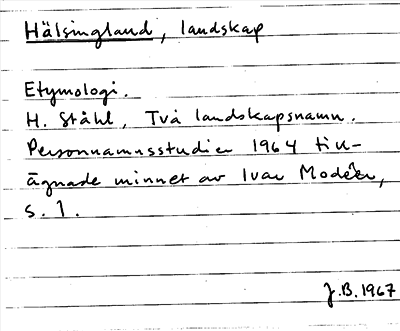 Hälsingland, landskap
Etymologi.
H. Ståhl, Två landskapsnamn.
Personnamnsstudier 1964 till-
ägnade minnet av Ivar Modéer,
s. 1.
J.B. 1967